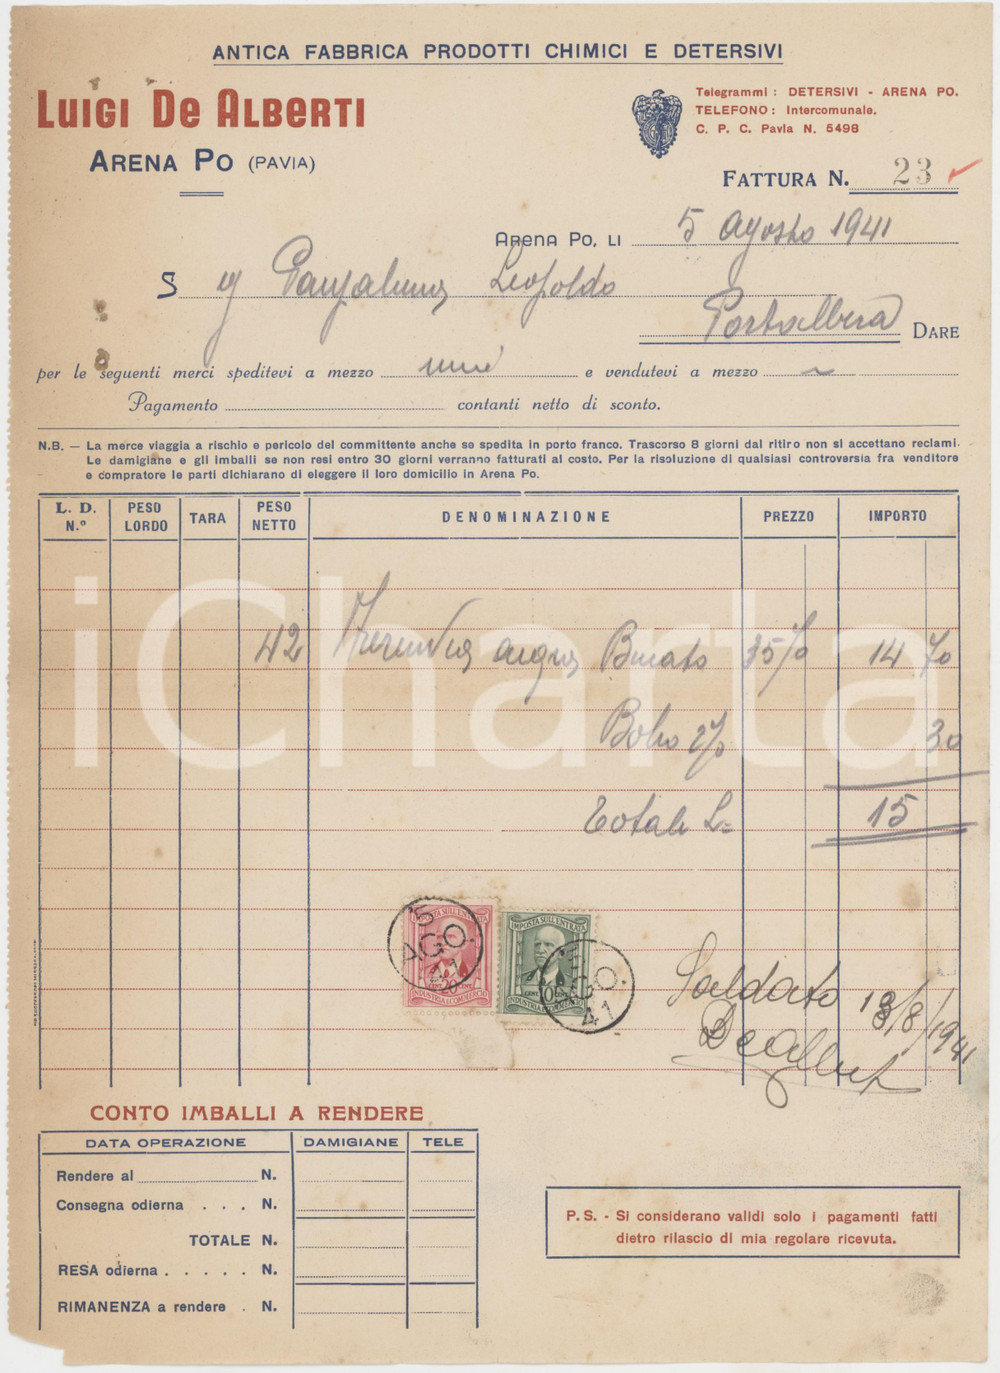 ANTICA FABBRICA PRODOTTI CHIMICI E DETERSIVI
LUIGI DE ALBERTI
ARENA PO (PAVIA)
Telegrammi: DETERSIVI - ARENA PO.
TELEFONO: Intercomunale.
C. P. C. Pavia N. 5498
FATTURA N. 23
Arena Po, LI 5 Agosto 1941
S ig Leopoldo
Portalbera DARE
per le seguenti merci speditevi a mezzo e vendutevi a mezzo
Pagamento contanti netto di sconto.
N.B. — La merce viaggia a rischio e pericolo del committente anche se spedita in porto franco. Trascorso 8 giorni dal ritiro non si accettano reclami.
Le damigiane e gli imballi se non resi entro 30 giorni verranno fatturati al costo. Per la risoluzione di qualsiasi controversia fra venditore
e compratore le parti dichiarano di eleggere il loro domicilio in Arena Po.
L. D. N.° PESO LORDO TARA PESO NETTO DENOMINAZIONE PREZZO IMPORTO
42 35% 14 70
Bollo 2% 30
Totale L= 15
iCharta
IMPOSTA SULL'ENTRATA
CENT 20
INDUSTRIA E COMMERCIO
5 AGO. 41
IMPOSTA SULL'ENTRATA
CENT 10
INDUSTRIA E COMMERCIO
5 AGO. 41
Saldato 18/8/1941
De Alberti
CONTO IMBALLI A RENDERE
DATA OPERAZIONE DAMIGIANE TELE
Rendere al N.
Consegna odierna . . . N.
TOTALE N.
RESA odierna . . . . . N.
RIMANENZA a rendere . N.
P. S. - Si considerano validi solo i pagamenti fatti
dietro rilascio di mia regolare ricevuta.